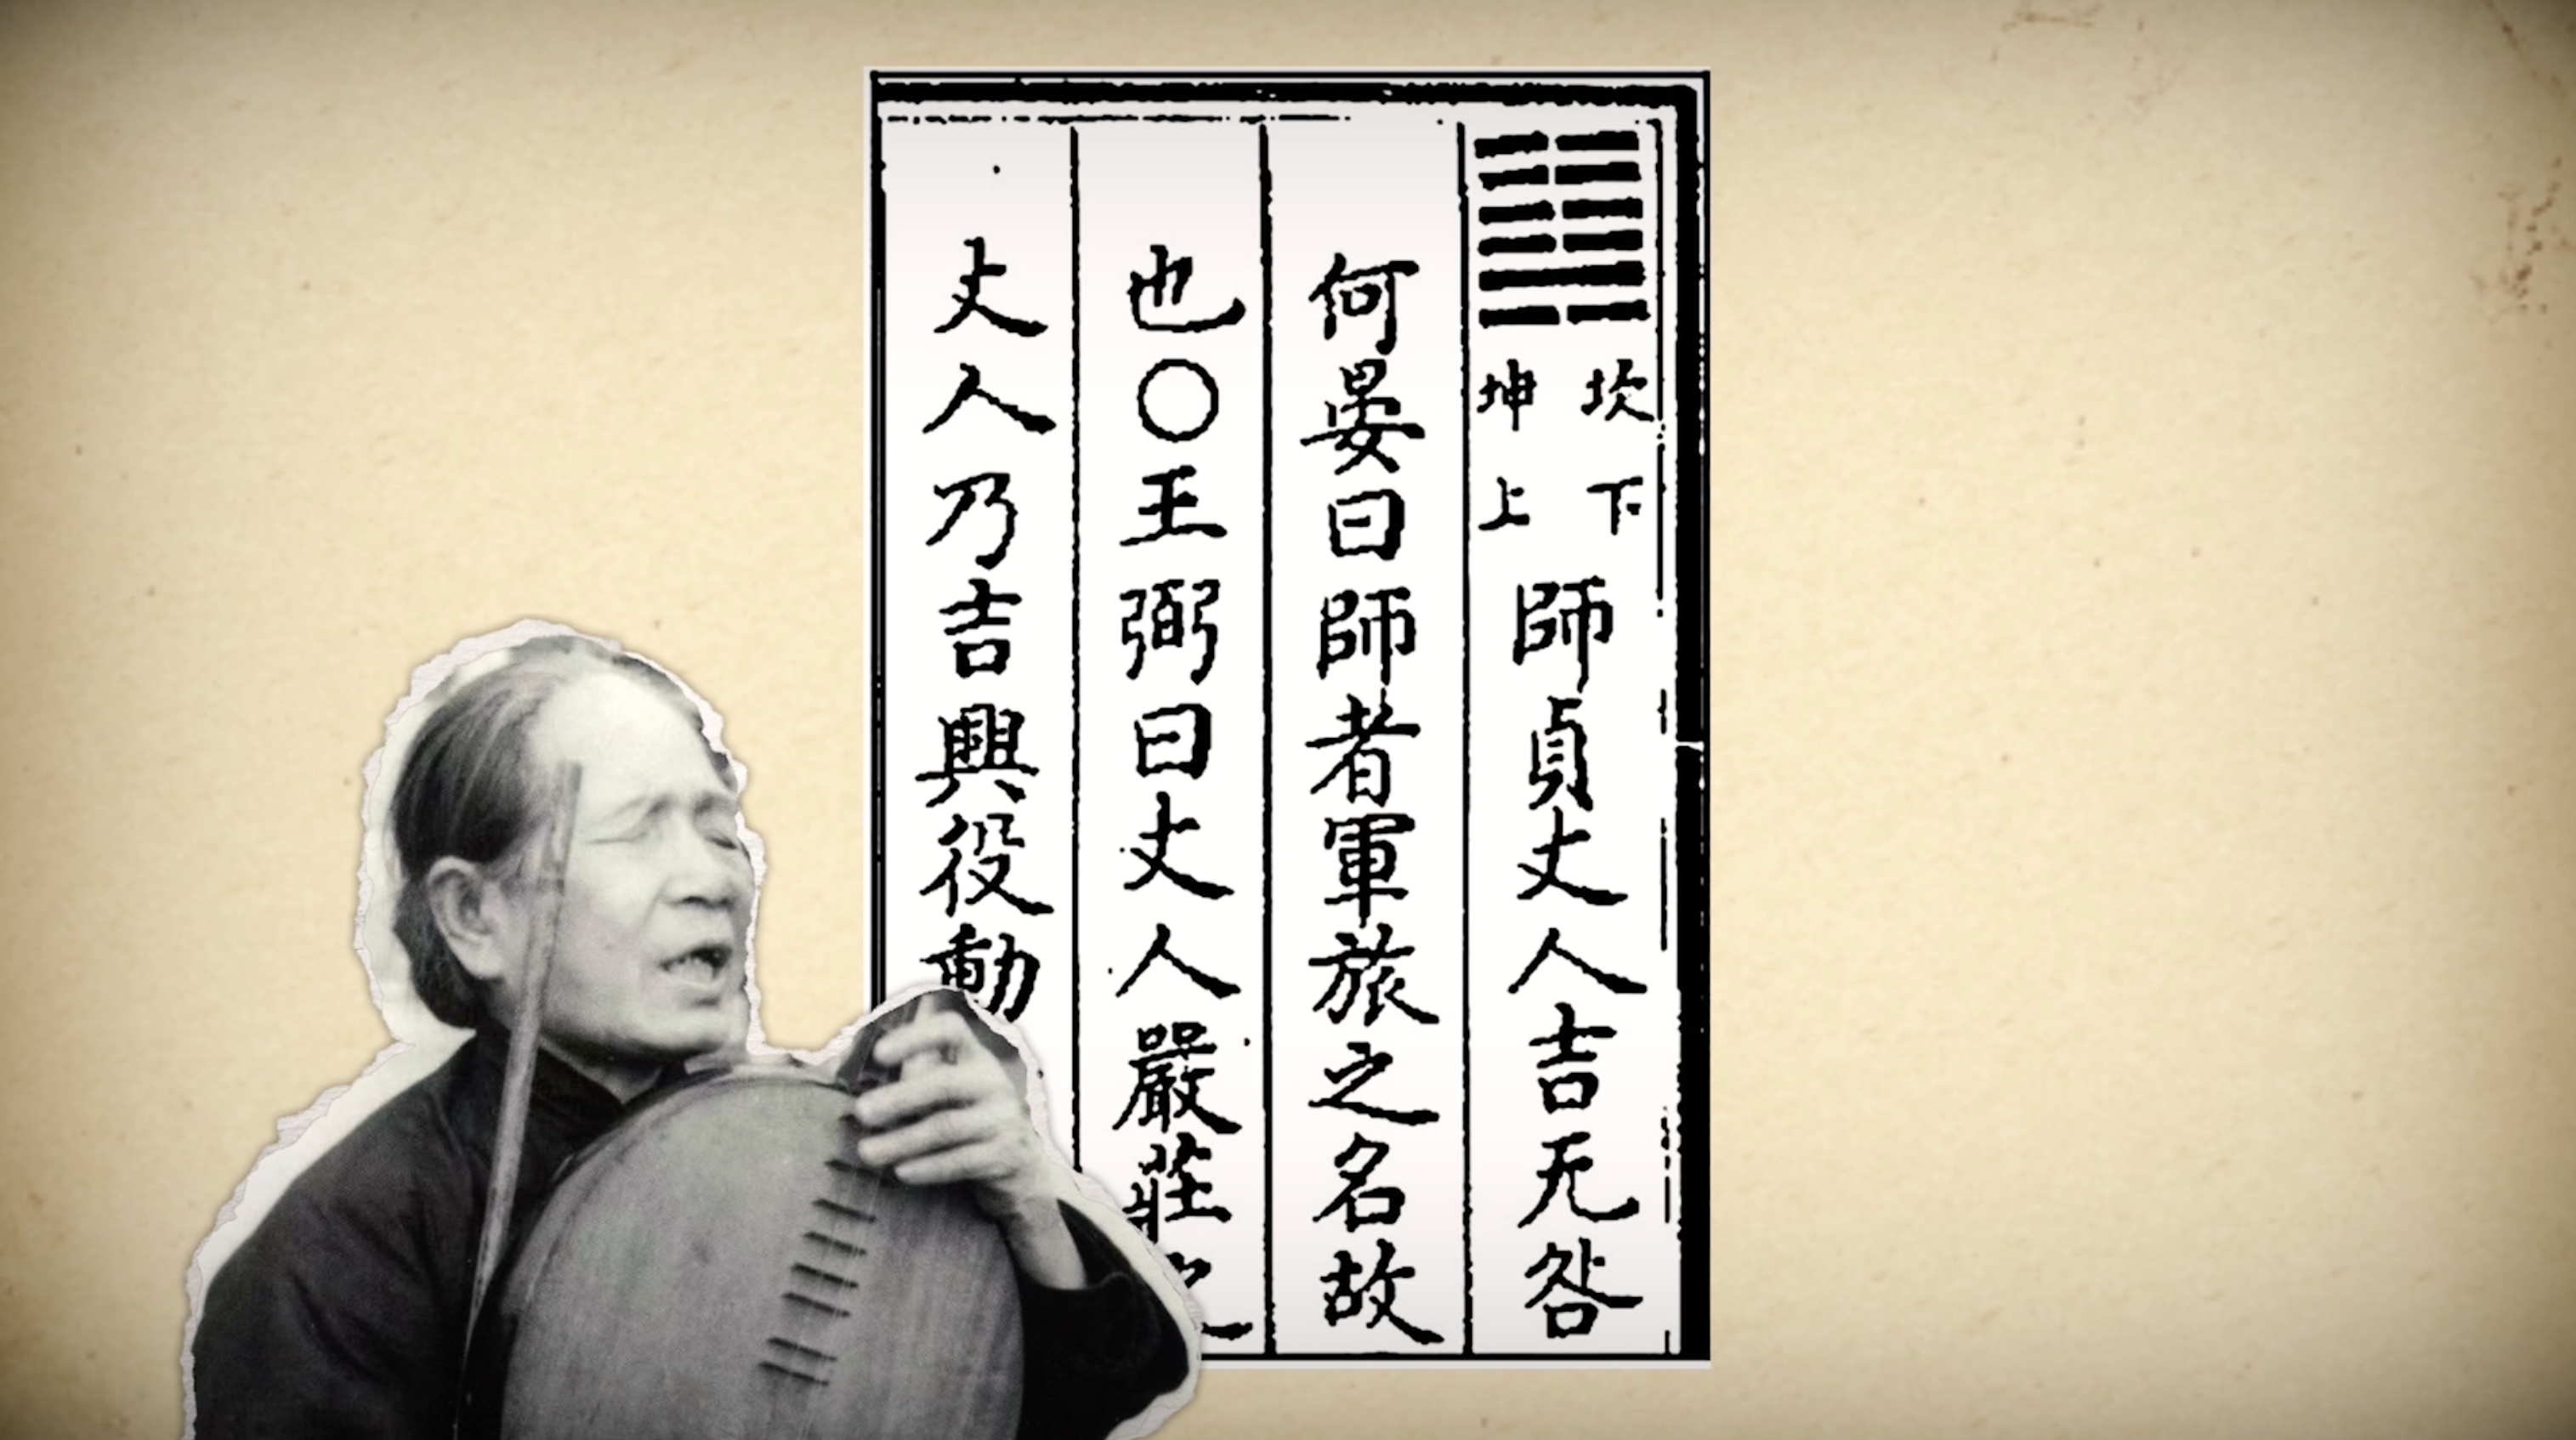 坎下
坤上
師貞丈人吉无咎
何晏曰師者軍旅之名故
也〇王弼曰丈人嚴莊
丈人乃吉興役動